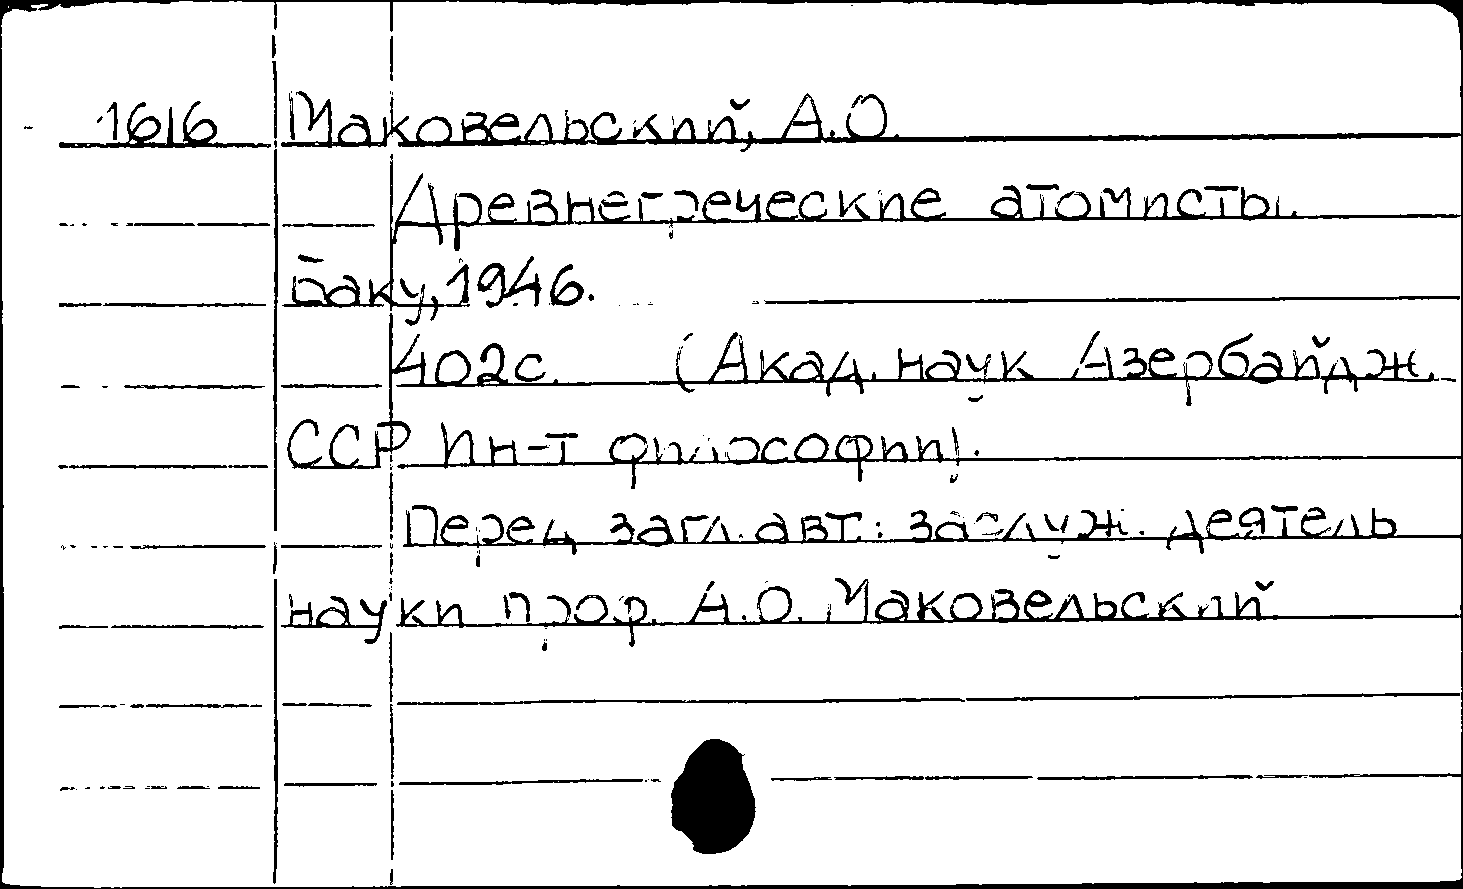 1616 Маковельский, А.О.
Древнегреческие атомисты.
Баку, 1946.
402с. (Акад. наук Азербайдж.
ССР Ин-т философии).
Перед загл. авт.: заслуж. деятель
науки проф. А.О. Маковельский